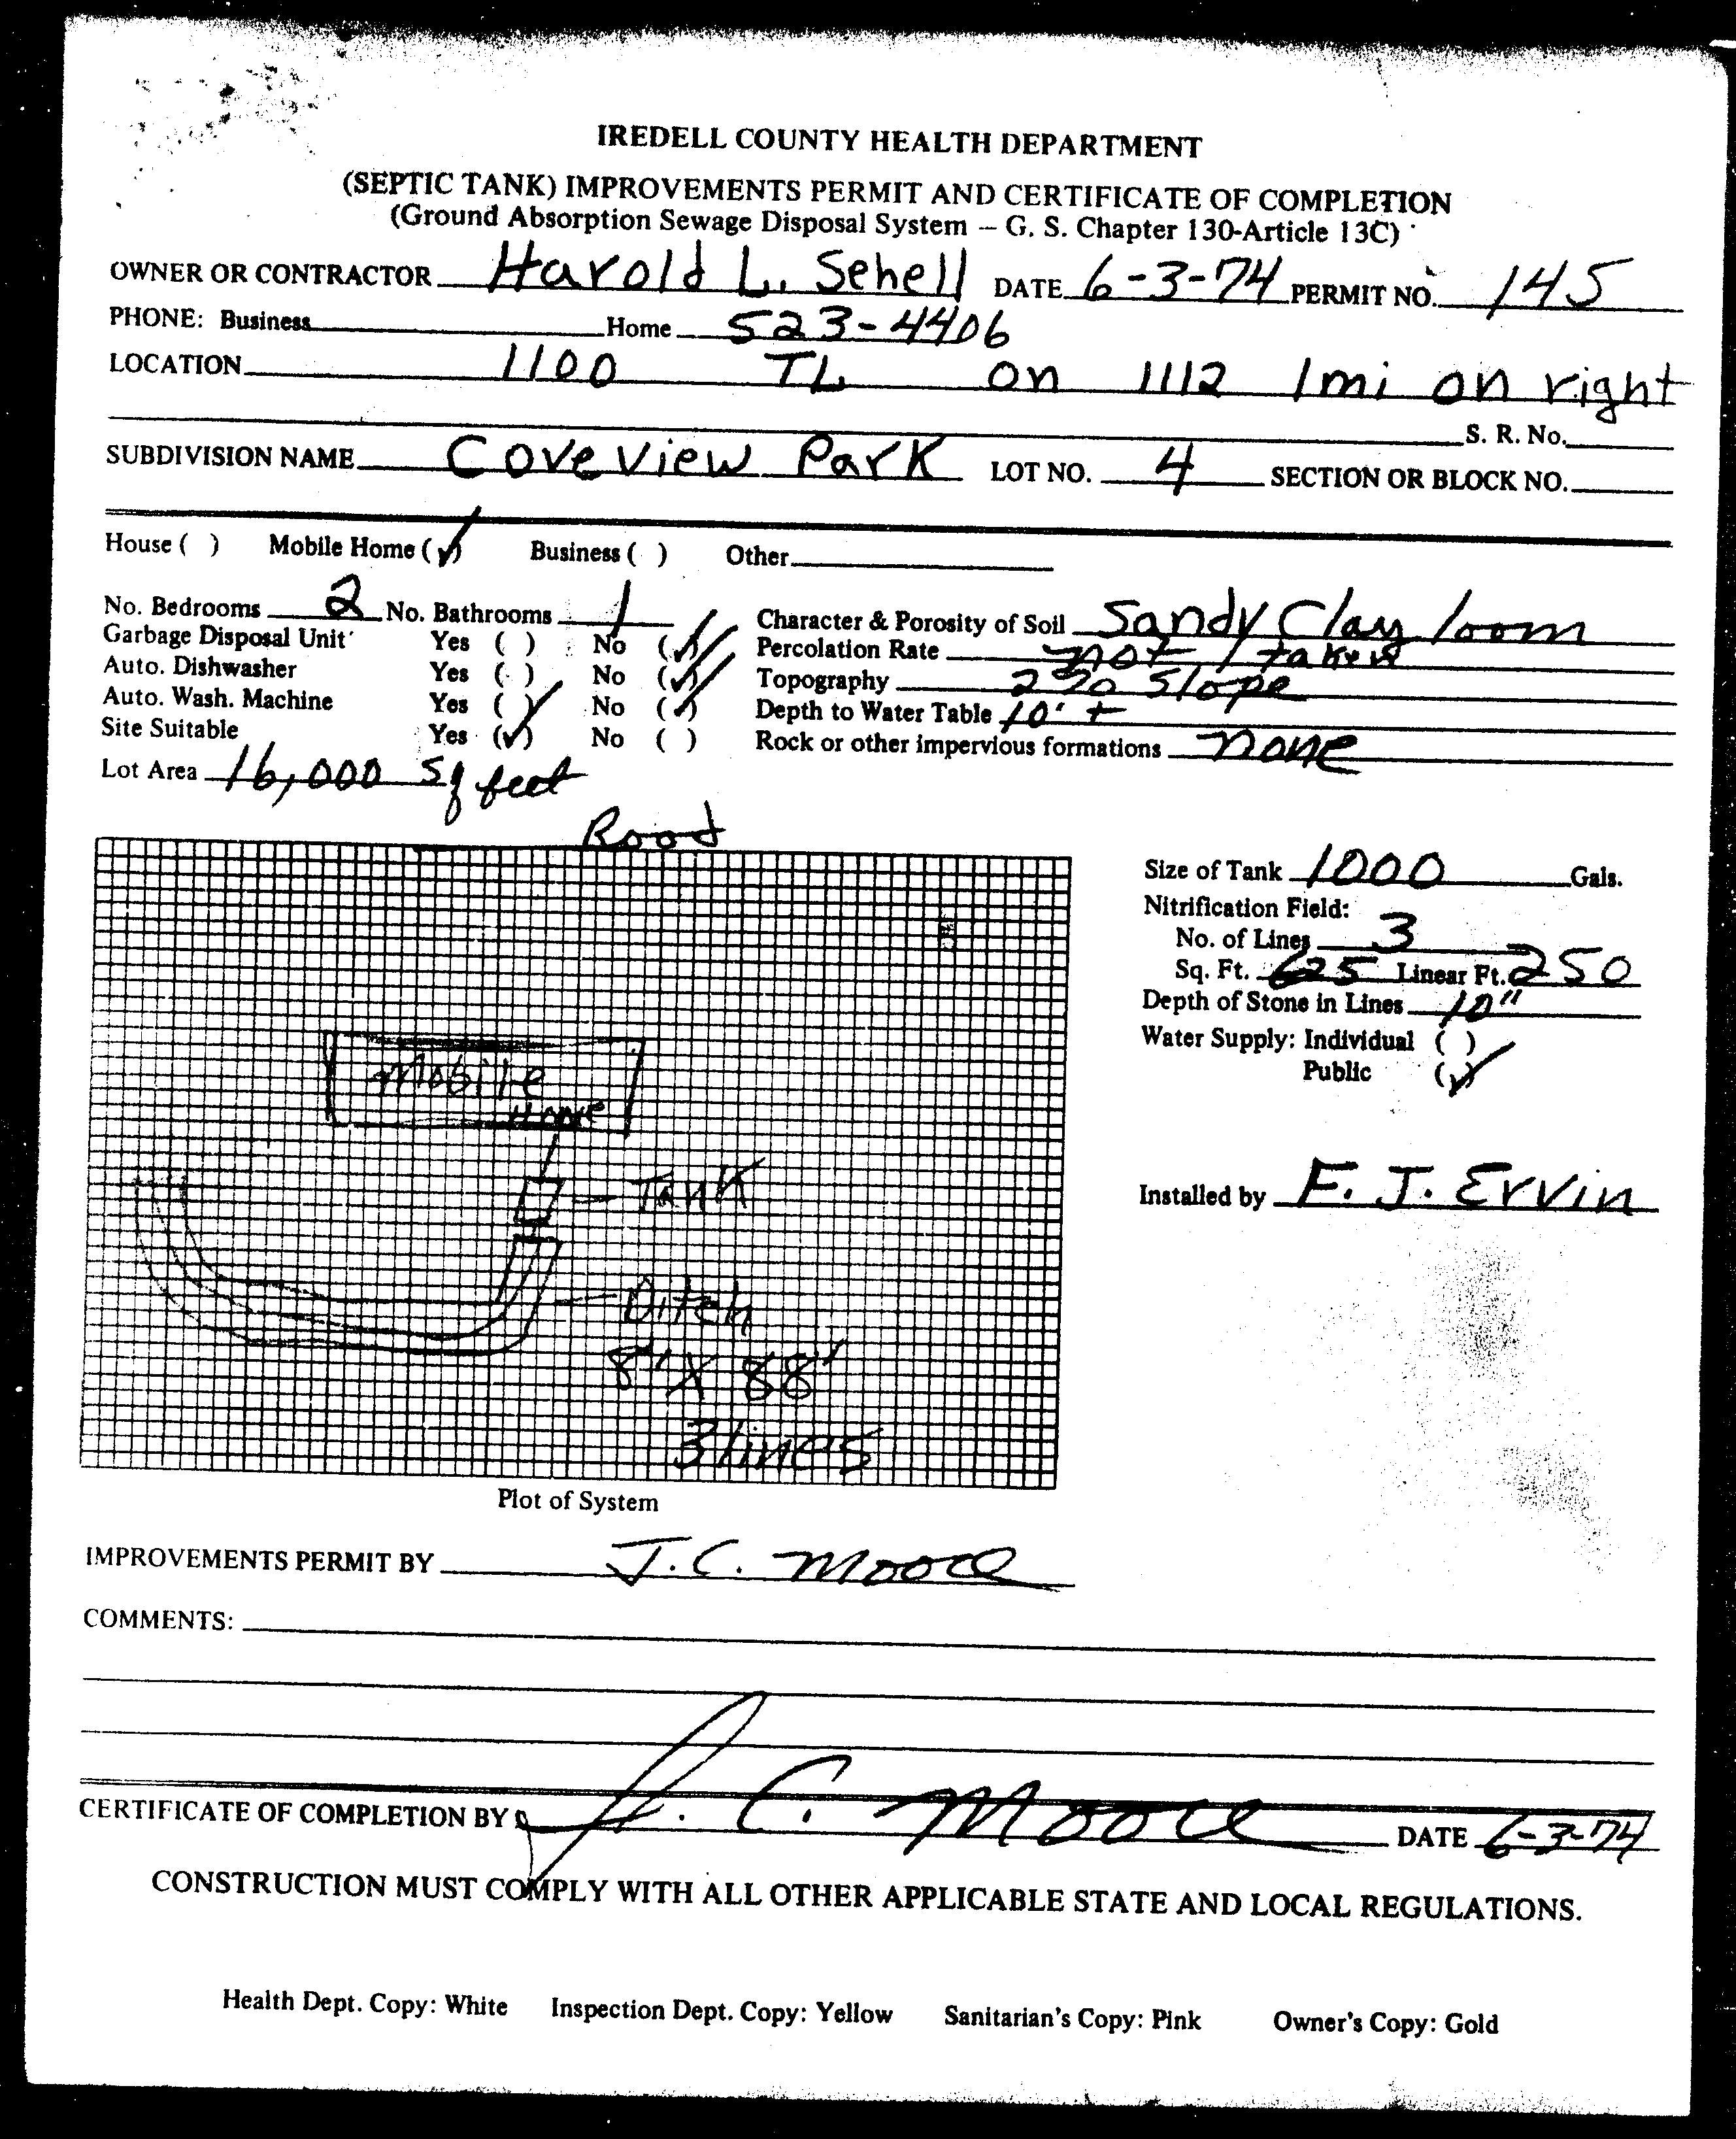 IREDELL COUNTY HEALTH DEPARTMENT
(SEPTIC TANK) IMPROVEMENTS PERMIT AND CERTIFICATE OF COMPLETION
(Ground Absorption Sewage Disposal System – G. S. Chapter 130-Article 13C)
OWNER OR CONTRACTOR Harold L. Sehell DATE 6-3-74 PERMIT NO. 145
PHONE: Business Home 523-4406
LOCATION 1100 TL on 1112 1mi on right
S. R. No.
SUBDIVISION NAME Coveview Park LOT NO. 4 SECTION OR BLOCK NO.
House ( ) Mobile Home (✓) Business ( ) Other
No. Bedrooms 2 No. Bathrooms 1 Character & Porosity of Soil Sandy Clay loom
Garbage Disposal Unit Yes ( ) No (✓) Percolation Rate not taken
Auto. Dishwasher Yes ( ) No (✓) Topography 2% Slope
Auto. Wash. Machine Yes ( ) No (✓) Depth to Water Table 10' +
Site Suitable Yes (✓) No ( ) Rock or other impervious formations none
Lot Area 16,000 sq feet
Road
Size of Tank 1000 Gals.
Nitrification Field:
No. of Lines 3
Sq. Ft. 625 Linear Ft. 250
Depth of Stone in Lines 10"
Water Supply: Individual ( )
Public (✓)
Mobile
Home
Tank
Installed by F. J. Ervin
Ditch
8" X 88'
3 lines
Plot of System
IMPROVEMENTS PERMIT BY J. C. Moore
COMMENTS:
CERTIFICATE OF COMPLETION BY J. C. Moore DATE 6-3-74
CONSTRUCTION MUST COMPLY WITH ALL OTHER APPLICABLE STATE AND LOCAL REGULATIONS.
Health Dept. Copy: White Inspection Dept. Copy: Yellow Sanitarian's Copy: Pink Owner's Copy: Gold